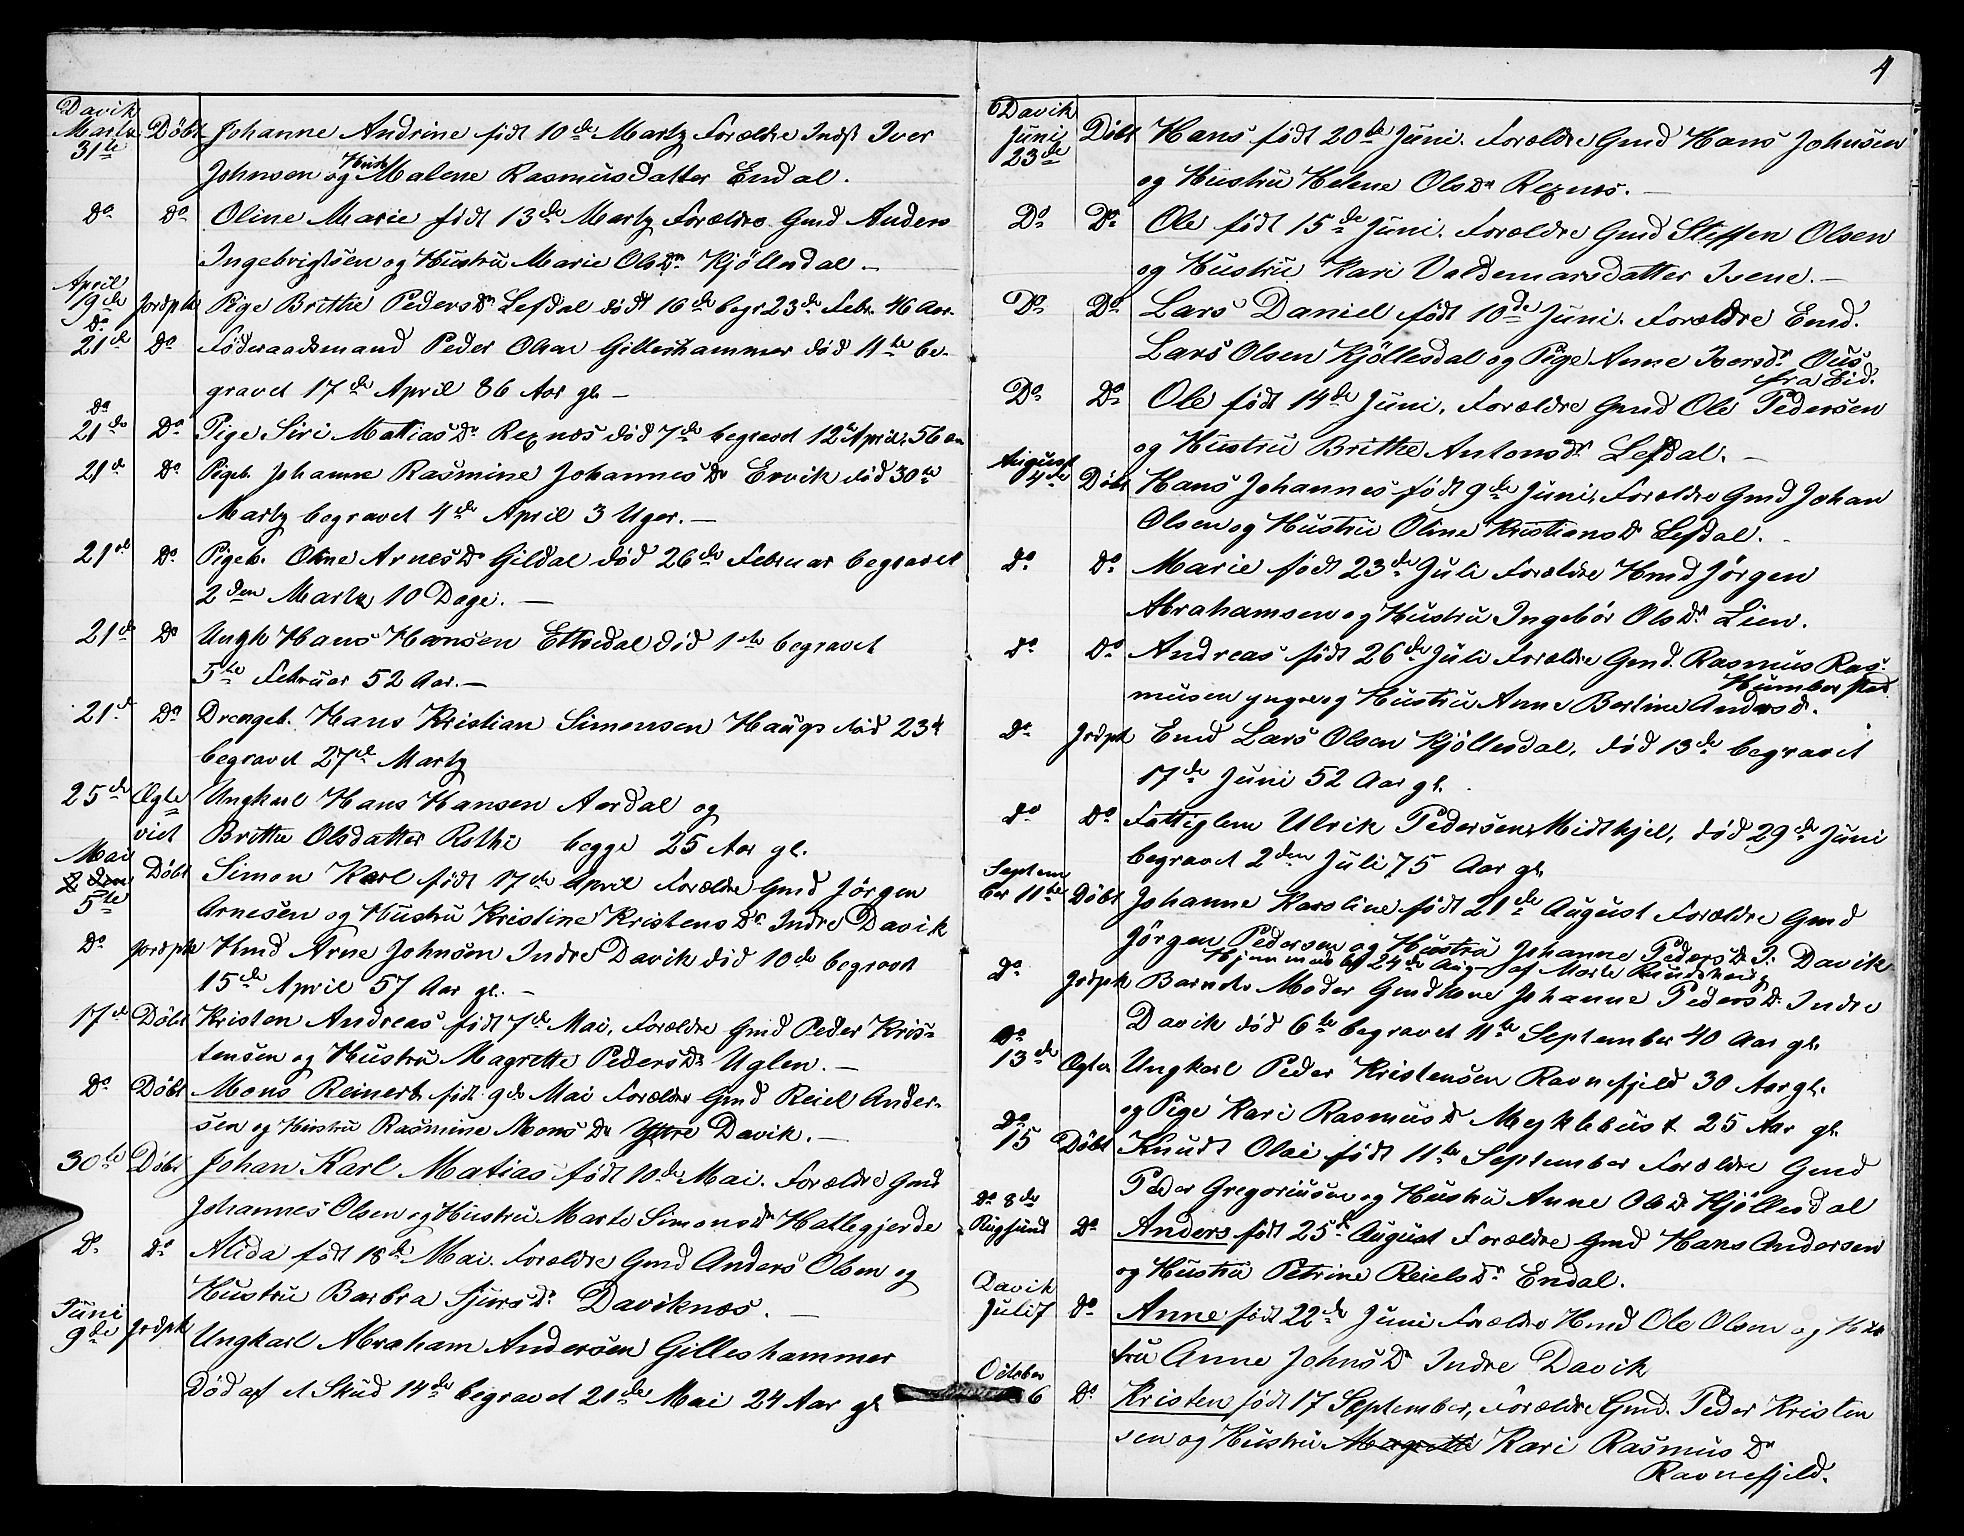 Davik
Martz Døbt Johanne Andrine født 10de Martz Forældre Indst Iver
31te
Johnsen og Hustr Malene Rasmusdatter Endal.
Do Do Oline Marie født 13de Martz Forældre Gmd Anders
Ingebrigtsen og Hustru Marie Olsdr Kjöllesdal —
April
19de Jordpk Pige Brithe Pedersdr Lefdal død 16de begr 23de Febr. 46 Aar.
Do
21de Do Føderaadsmand Peder Olsen Gilleshammer død 11te be-
gravet 17de April 86 Aar gl. —
Do
21de Do Pige Siri Matiasdr Rexnæs død 7de begravet 12te April, 56 aar
21de Do Pigeb. Johanne Rasmine Johannesdr Ervik død 30te
Martz begravet 4de April 3 Uger. —
21de Do Pigeb. Oline Arnesdr Gildal død 26de Februar begravet
2den Martz 10 Dage. —
21de Do Ungk Hans Hansen død 1ste begravet
5te Februar 52 Aar. —
21de Do Drengeb. Hans Kristian Simonsen Haugs død 23de
begravet 27de Martz
25de Ægte Ungkarl Hans Hansen Aardal og
viet Brithe Olsdatter Rothi begge 25 Aar gl.
Mai
2den Døbt Simon Karl født 17de April Forældre Gmd Jörgen
5te
Arnesen og Hustru Kristine Kristensdr Indre Davik
Do Jordpk Hmd Arne Johnsen Indre Davik død 10de begravet
15de April 57 Aar gl. —
17de Døbt Kristen Andreas født 7de Mai, Forældre Gmd Peder Kris-
tensen og Hustru Magrethe Pedersdr Uglen. —
Do Døbt Mons Reinert født 9de Mai Forældre Gmd Reiel Ander-
sen og Hustru Rasmine Monsdr Yttre Davik. —
30te Døbt Johan Karl Matias født 10de Mai. Forældre Gmd
Johannes Olsen og Hustru Marte Simonsdr Hatlegjerde
Do Do Alida født 18de Mai. Forældre Gmd Anders Olsen og
Hustru Barbra Sjursdr Daviknæs. —
Juni
9de Jordpk Ungkarl Abraham Andersen Gilleshammer
Død af et Skud 14de begravet 21de Mai 24 Aar gl.
4
Davik
Juni Døbt Hans født 20de Juni. Forældre Gmd Hans Johnsen
23de
og Hustru Helene Olsdr Rexnæs. —
Do Do Ole født 15de Juni. Forældre Gmd Steffen Olsen
og Hustru Kari Valdemarsdatter Isene. —
Do Do Lars Daniel født 10de Juni. Forældre Emd.
Lars Olsen Kjöllesdal og Pige Anne Iversdr Ous
fra Eid.
Do Do Ole født 14de Juni, Forældre Gmd Ole Pedersen
og Hustru Brithe Antonsdr Lefdal. —
August
4de Døbt Hans Johannes født 9de Juni, Forældre Gmd Johan
Olsen og Hustru Oline Kristiansdr Lefdal. —
Do Do Marie født 23de Juli Forældre Hmd Jörgen
Abrahamsen og Hustru Ingebör Olsdr Lien.
Do Do Andreas født 26de Juli Forældre Gmd. Rasmus Ras-
Humberstad
musen yngre og Hustru Anne Berline Andersdr.
Do Jordpk Emd Lars Olsen Kjöllesdal, død 13de begravet
17de Juni 52 Aar gl.
Do Do Fattiglem Ulrik Pedersen, Midthjel, død 29de Juni
begravet 2den Juli 75 Aar gl.
Septem
ber 11te Døbt Johanne Karoline født 21de August Forældre Gmd
Jörgen Pedersen og Hustru Johanne Pedersdr I. Davik
Hjemmedøbt 24de Aug af Marte Knudshaug
Do Jordpk Barnets Moder Gmdkone Johanne Pedersdr Indre
Davik død 6te begravet 11te September 40 Aar gl.
Do
13de Ægtev Ungkarl Peder Kristensen Ravnefjeld 30 Aar gl.
og Pige Kari Rasmusdr Myklebust 25 Aar gl.
Do
15 Døbt Knudt Olai født 11te September Forældre Gmd
Peder Gregoriusen og Hustru Anne Olsdr Kjöllesdal
Do 8de
Rugsund Do Anders født 25de August Forældre Gmd Hans Andersen
og Hustru Petrine Reielsdr Endal.
Davik
Juli 7 Do Anne født 22de Juni Forældre Hmd Ole Olsen og Hus
tru Anne Johnsdr Indre Davik
October
6 Do Kristen født 17 September, Forældre Gmd. Peder Kristen
sen og Hustru Magrethe Kari Rasmusdr
Ravnefjeld.